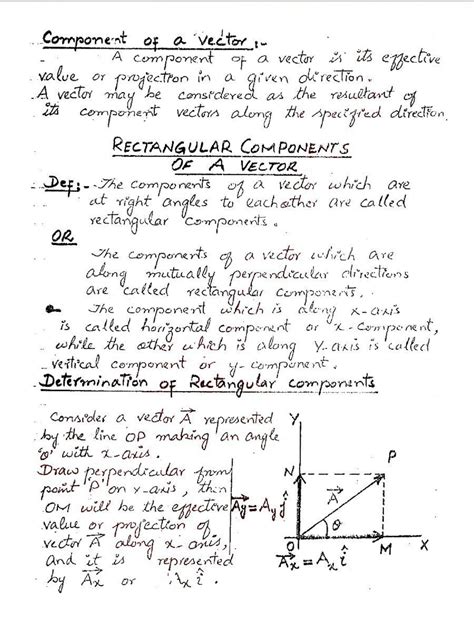 Component of a vector :-
A component of a vector is its effective
value or projection in a given direction.
A vector may be considered as the resultant of
its component vectors along the specified direction.
RECTANGULAR COMPONENTS
OF A VECTOR
Def:- The components of a vector which are
at right angles to each other are called
rectangular components.
OR
The components of a vector which are
along mutually perpendicular directions
are called rectangular components.
The component which is along x-axis
is called horizontal component or x-component,
while the other which is along Y-axis is called
vertical component or y-component.
Determination of Rectangular components
Consider a vector A⃗ represented
by the line OP making an angle
'θ' with x-axis.
Draw perpendicular from
point 'P' on x-axis, then
OM will be the effective
value or projection of
vector A⃗ along x-axis,
and it is represented
by A⃗x or Ax î.
Y
N
P
A⃗
A⃗y = Ay ĵ
θ
O
M
X
A⃗x = Ax î